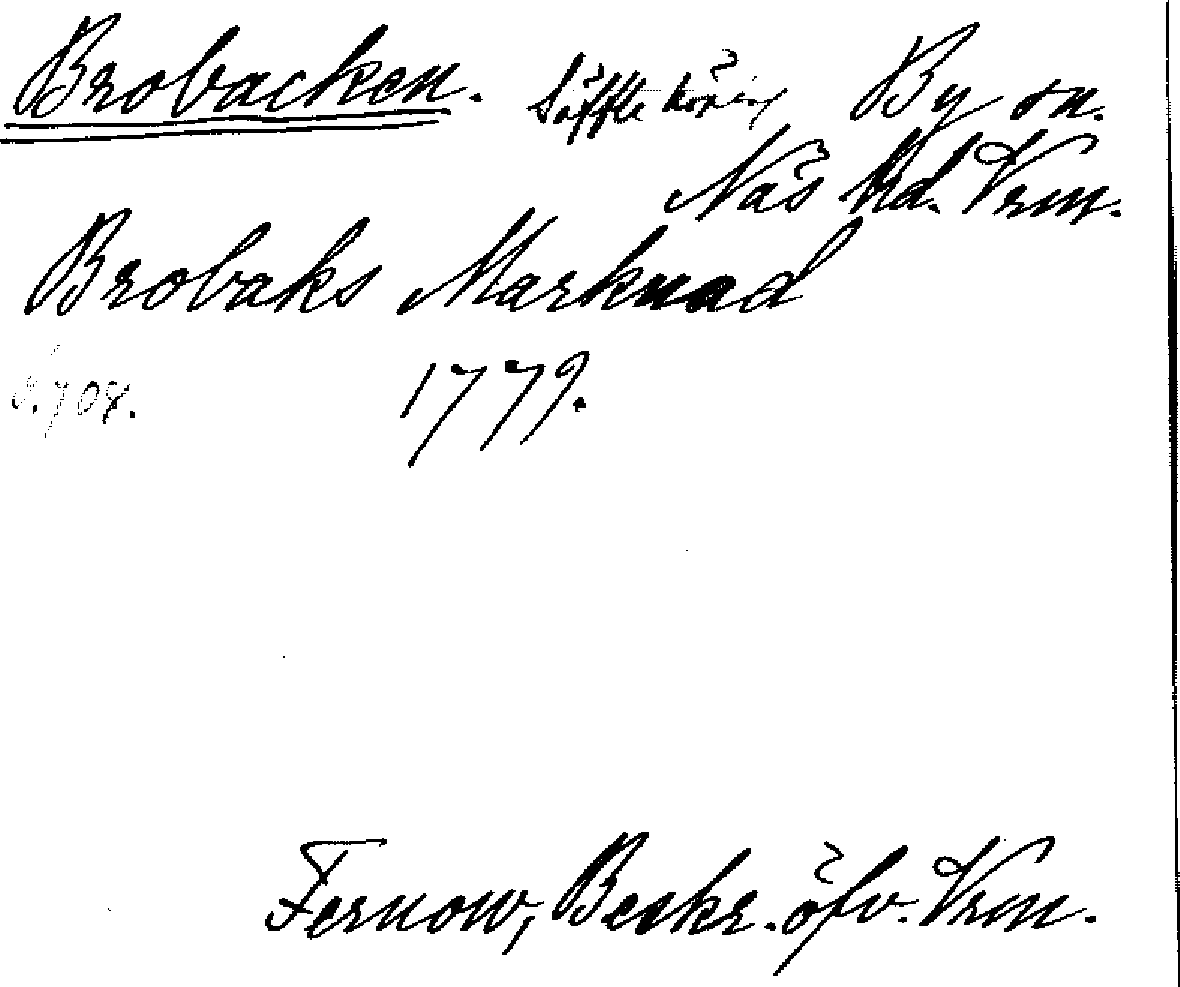 Brobacken. Säffle köping By sn.
Näs hd. Vrm.
Brobaks Marknad
s. 708. 1779.
Fernow, Beskr. öfv. Vrm.